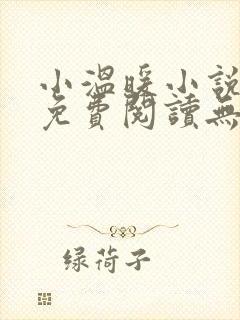 小溫暖小說
免費閱讀無
绿荷子